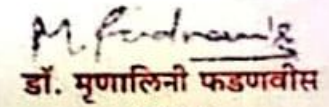 M. Fadnavis
डॉ. मृणालिनी फडणवीस